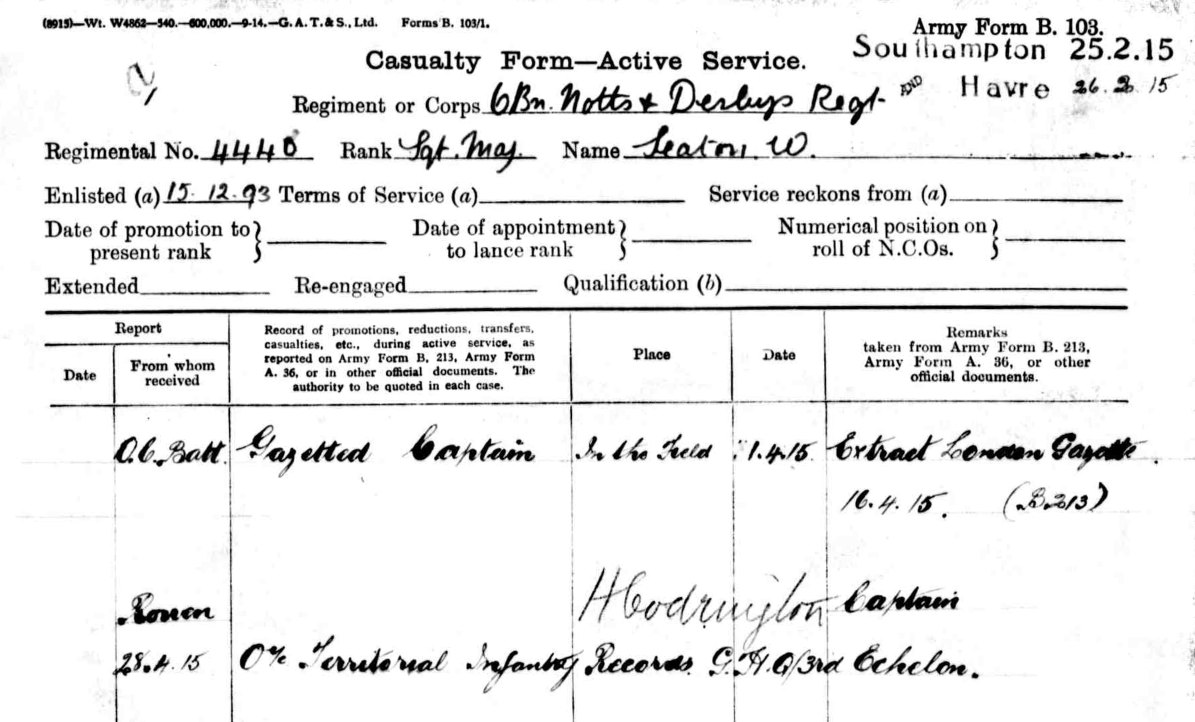 (8915)—Wt. W4862—540.—600,000.—9-14.—G. A. T. & S., Ltd. Forms B. 103/1.
Army Form B. 103.
Southampton 25.2.15
Casualty Form—Active Service.
AND Havre 26.2.15
Regiment or Corps 6 Bn. Notts & Derbys Regt.
Regimental No. 4440 Rank Sgt. Maj. Name Seaton. W.
Enlisted (a) 15. 12. 93 Terms of Service (a) Service reckons from (a)
Date of promotion to present rank } Date of appointment to lance rank } Numerical position on roll of N.C.Os. }
Extended Re-engaged Qualification (b)
Report
Date
From whom received
Record of promotions, reductions, transfers,
casualties, etc., during active service, as
reported on Army Form B. 213, Army Form
A. 36, or in other official documents. The
authority to be quoted in each case.
Place
Date
Remarks
taken from Army Form B. 213,
Army Form A. 36, or other
official documents.
O.C. Batt. Gazetted Captain In the Field 1.4.15 Extract London Gazette
16.4.15. (B.213)
HCodrington Captain
Rouen
28.4.15 O i/c Territorial Infantry Records. G.H.Q/3rd Echelon.